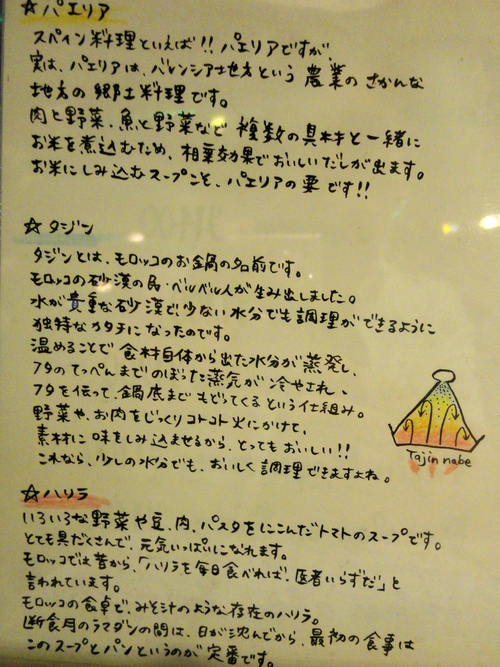 ☆パエリア
スペイン料理といえば!! パエリアですが、
実は、パエリアは、バレンシア地方という 農業の さかんな
地方の 郷土料理です。
肉と野菜、魚と野菜など 複数の具材と一緒に
お米を煮込むため、相乗効果でおいしいだしが出ます。
お米にしみ込むスープこそ、パエリアの要です!!
☆タジン
タジンとは、モロッコのお鍋の名前です。
モロッコの砂漠の民・ベルベル人が生み出しました。
水が貴重な砂漠で、少ない水分でも調理ができるように
独特なカタチになったのです。
温めることで 食材自体から出た水分が蒸発し、
フタのてっぺんまでのぼった蒸気が冷やされ、
フタを伝って、鍋底までもどってくるという仕組み。
野菜や、お肉をじっくりコトコト火にかけて、
素材に味をしみ込ませるから、とってもおいしい!!
これなら、少しの水分でも、おいしく調理できますよね。
Tajin nabe
☆ハリラ
いろいろな野菜や豆、肉、パスタをにこんだトマトのスープです。
とても具だくさんで、元気いっぱいになれます。
モロッコでは昔から、「ハリラを毎日食べれば、医者いらずだ」と
言われています。
モロッコの食卓で、みそ汁のような存在のハリラ。
断食月のラマダンの間は、日が沈んでから、最初の食事は
このスープとパンというのが定番です。